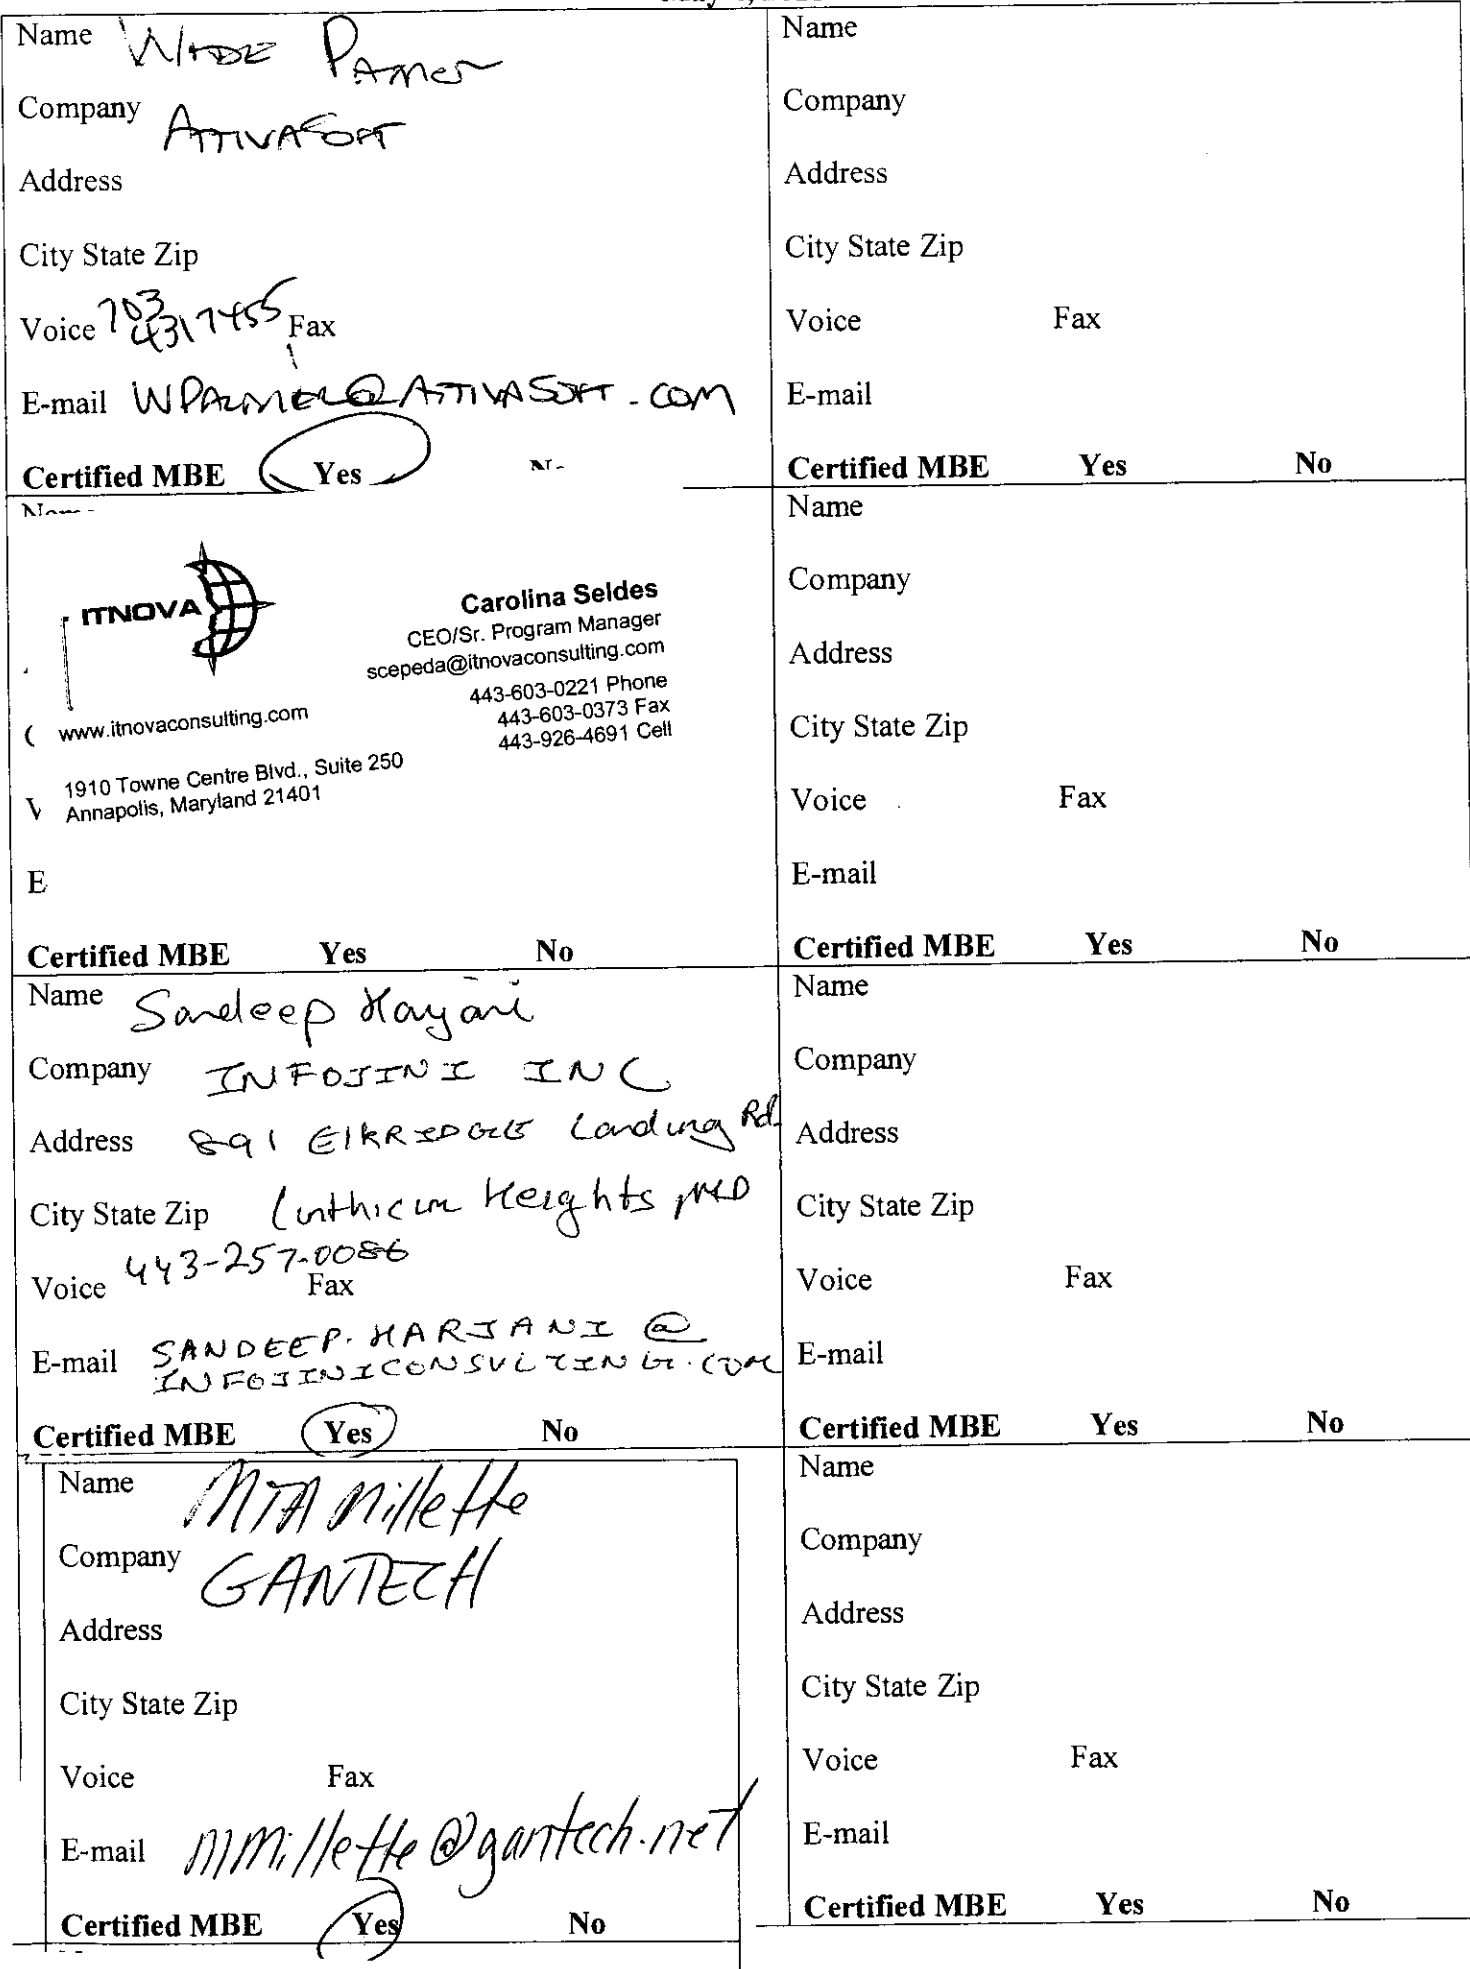 Name Wade Palmer
Company ATTIVASOFT
Address
City State Zip
Voice 703 4317455 Fax
E-mail WPALMER@ATTIVASOFT.COM
Certified MBE Yes
ITNOVA
Carolina Seldes
CEO/Sr. Program Manager
scepeda@itnovaconsulting.com
443-603-0221 Phone
443-603-0373 Fax
443-926-4691 Cell
www.itnovaconsulting.com
1910 Towne Centre Blvd., Suite 250
Annapolis, Maryland 21401
E
Certified MBE Yes No
Name Sandeep Harjani
Company INFOJINI INC
Address 891 ElKRIDGE Landing Rd.
City State Zip Linthicum Heights MD
Voice 443-257-0086 Fax
E-mail SANDEEP.HARJANI@
INFOJINICONSULTING.COM
Certified MBE Yes No
Name Millette
Company GANTECH
Address
City State Zip
Voice Fax
E-mail MMillette@gantech.net
Certified MBE Yes No
Name
Company
Address
City State Zip
Voice Fax
E-mail
Certified MBE Yes No
Name
Company
Address
City State Zip
Voice Fax
E-mail
Certified MBE Yes No
Name
Company
Address
City State Zip
Voice Fax
E-mail
Certified MBE Yes No
Name
Company
Address
City State Zip
Voice Fax
E-mail
Certified MBE Yes No